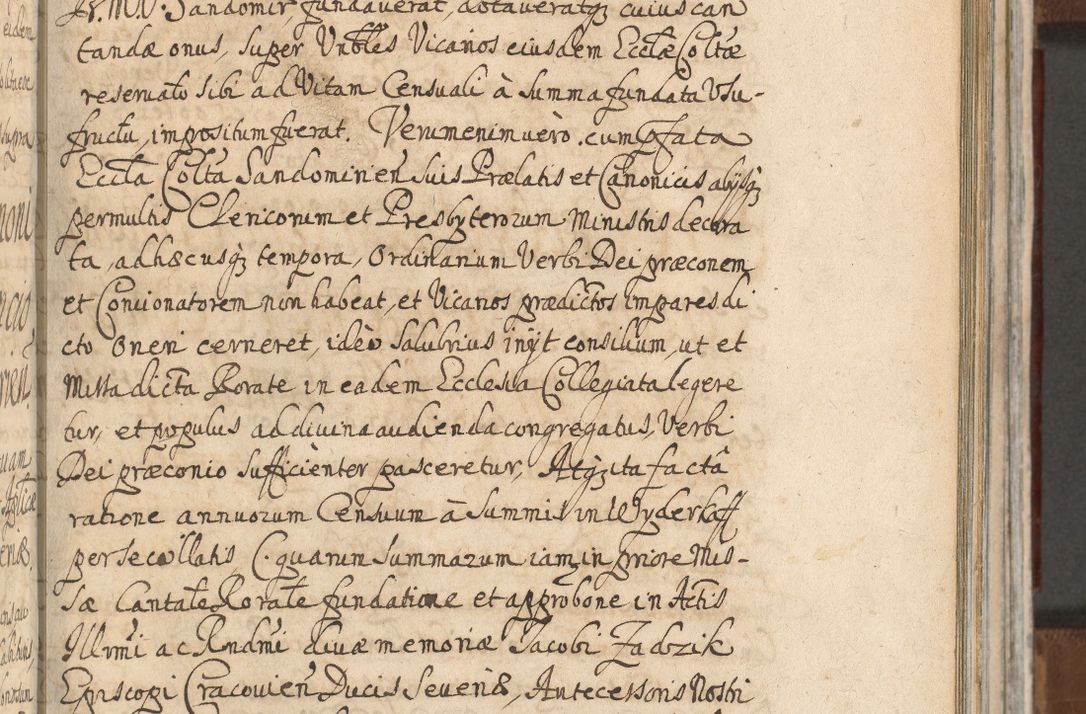 Sandomir, fundaverat, dotaveratq; cuius can
tandæ onus, super Vnbles Vicarios eiusdem Ecclæ Coltæ
reseruato sibi ad Vitam Censuali à summa fundata Vsu-
fructu, impositum fuerat. Verumenimuerò cum pfata
Eccla Colta Sandominen Suis Prælatis et Canonicis alysq;
permultis Clericorum et Presbyterorum Ministris decora
ta, adhæcusq; tempora, Ordinarium Verbi Dei præconem
et Concionatorem non habeat, et Vicarios prædictos impares di
cto Oneri cerneret, ideò Salubrius inijt consilium, ut et
Missa dicta Rorate in eadem Ecclesia Collegiata legere
tur, et populus ad divina audienda congregatus, Verbi
Dei præconio sufficienter pasceretur, Atq; ita factâ
ratione annuorum Censuum à Summis in Wyderkaff
per se collatis (quarum summarum iam, in priore Mis-
sæ Cantatæ Rorate fundatione et approbone in Actis
Illrmi ac Rndmi divæ memoriæ Jacobi Zadzik
Episcopi Cracovien Ducis Severiæ, Antecessoris Nostri